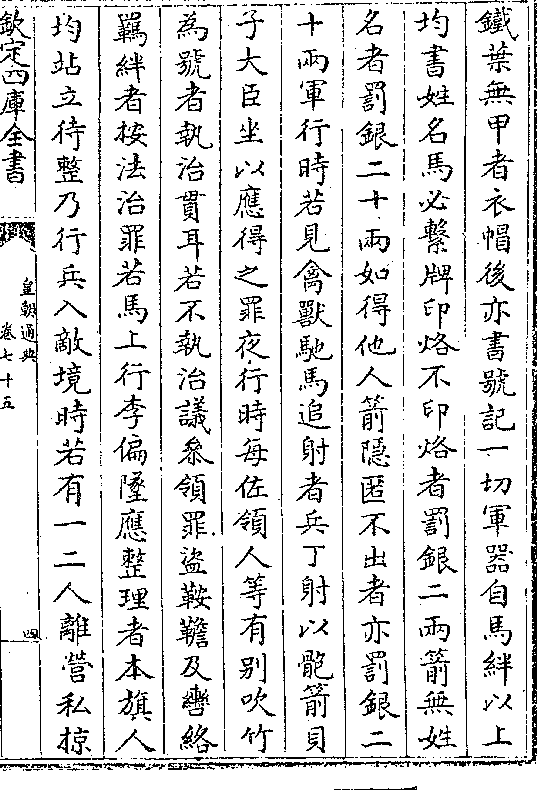 鐵葉無甲者衣帽後亦書號記一切軍器自馬絆以上
均書姓名馬必繫牌印烙不印烙者罰銀二兩箭無姓
名者罰銀二十兩如得他人箭隱匿不出者亦罰銀二
十兩軍行時若見禽獸馳馬追射者兵丁射以骲箭貝
子大臣坐以應得之罪夜行時每佐領人等有别吹竹
為號者執治貫耳若不執治議叅領罪盜鞍韂及轡絡
羈絆者按法治罪若馬上行李偏墜應整理者本旗人
均站立待整乃行兵入敵境時若有一二人離營私掠
欽定四庫全書
皇朝通典
卷七十五
四